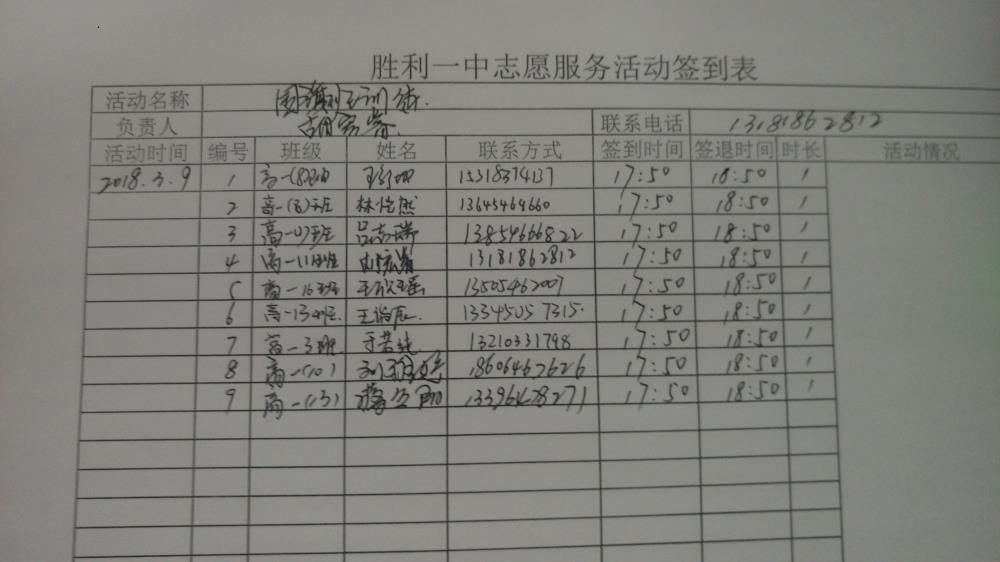 胜利一中志愿服务活动签到表
活动名称 国旗班训练
负责人 联系电话 13181862812
活动时间 编号 班级 姓名 联系方式 签到时间 签退时间 时长 活动情况
2018.3.9 1 高一(8)班 15318374137 17:50 18:50 1
2 高一(8)班 林恺然 13645464660 17:50 18:50 1
3 高一(7)班 吕志瑞 13854666822 17:50 18:50 1
4 高一11班 13181862812 17:50 18:50 1
5 高一16班 王欣瑶 13505462007 17:50 18:50 1
6 高一13班 王浩辰 13345057315 17:50 18:50 1
7 高一3班 于若纯 13210331798 17:50 18:50 1
8 高一(10) 18606462626 17:50 18:50 1
9 高一(13) 13396428271 17:50 18:50 1